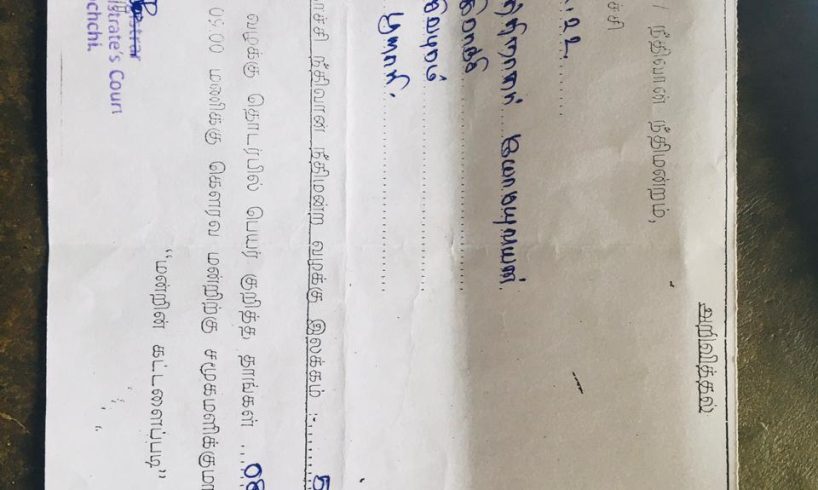 அறிவித்தல்
/ நீதிவான் நீதிமன்றம்,
ச்சி
.22
சிவபுரம்
பூநகரி.
ாச்சி நீதிவான் நீதிமன்ற வழக்கு இலக்கம் :-........5
வழக்கு தொடர்பில் பெயர் குறித்த தாங்கள் ...08
09.00 மணிக்கு கௌரவ மன்றிற்கு சமூகமளிக்குமா
"மன்றின் கட்டளைப்படி"
istrar
istrate's Court
chchi.